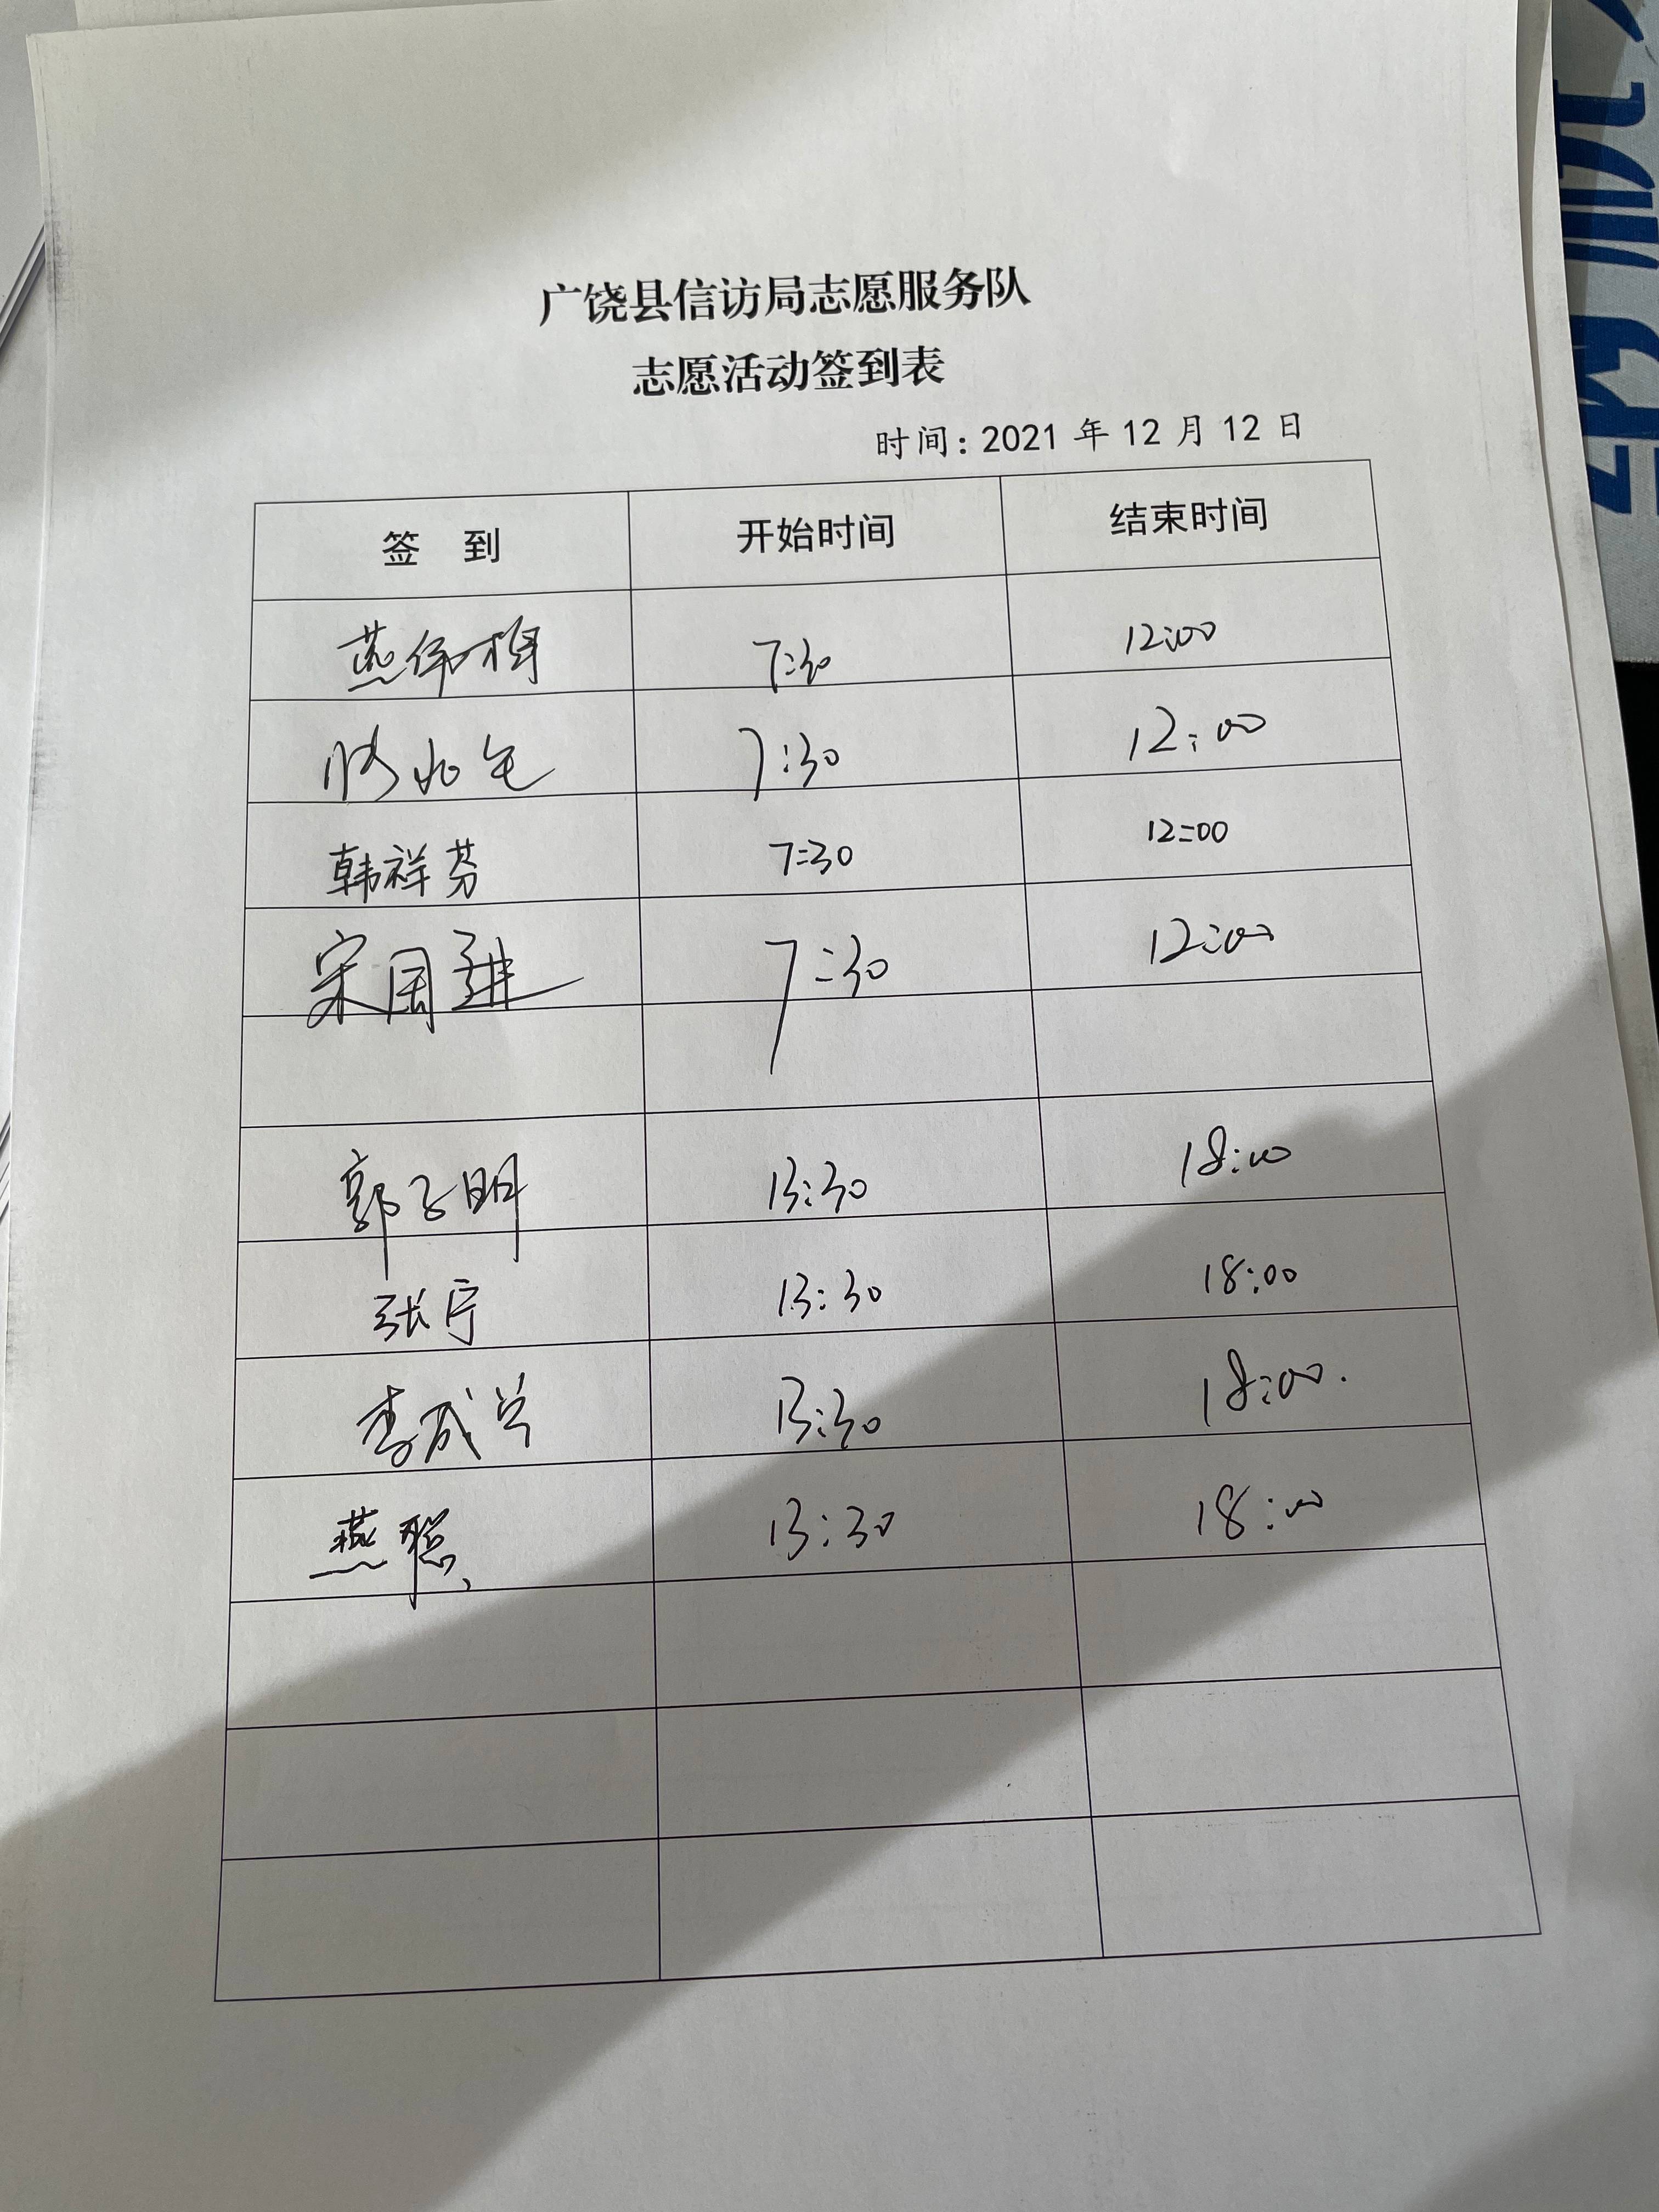 广饶县信访局志愿服务队
志愿活动签到表
时间：2021 年 12 月 12 日
签 到 开始时间 结束时间
燕 7:30 12:00
7:30 12:00
韩祥芬 7:30 12:00
宋国进 7:30 12:00
郭子明 13:30 18:00
张宁 13:30 18:00
李成兴 13:30 18:00.
燕聪 13:30 18:00